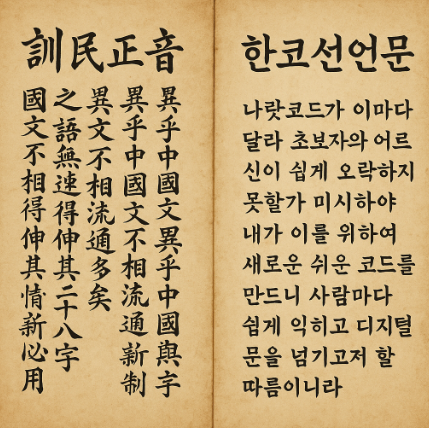 訓民正音
異乎中國文異乎中國與字
異乎中國文不相流通新制
異文不相流通多矣
之語無速得伸其二十八字
國文不相得伸其情新必用
한코선언문
나랏코드가 이마다
달라 초보자와 어르
신이 쉽게 오락하지
못할가 미시하야
내가 이를 위하여
새로운 쉬운 코드를
만드니 사람마다
쉽게 익히고 디지털
문을 넘기고저 할
따름이니라